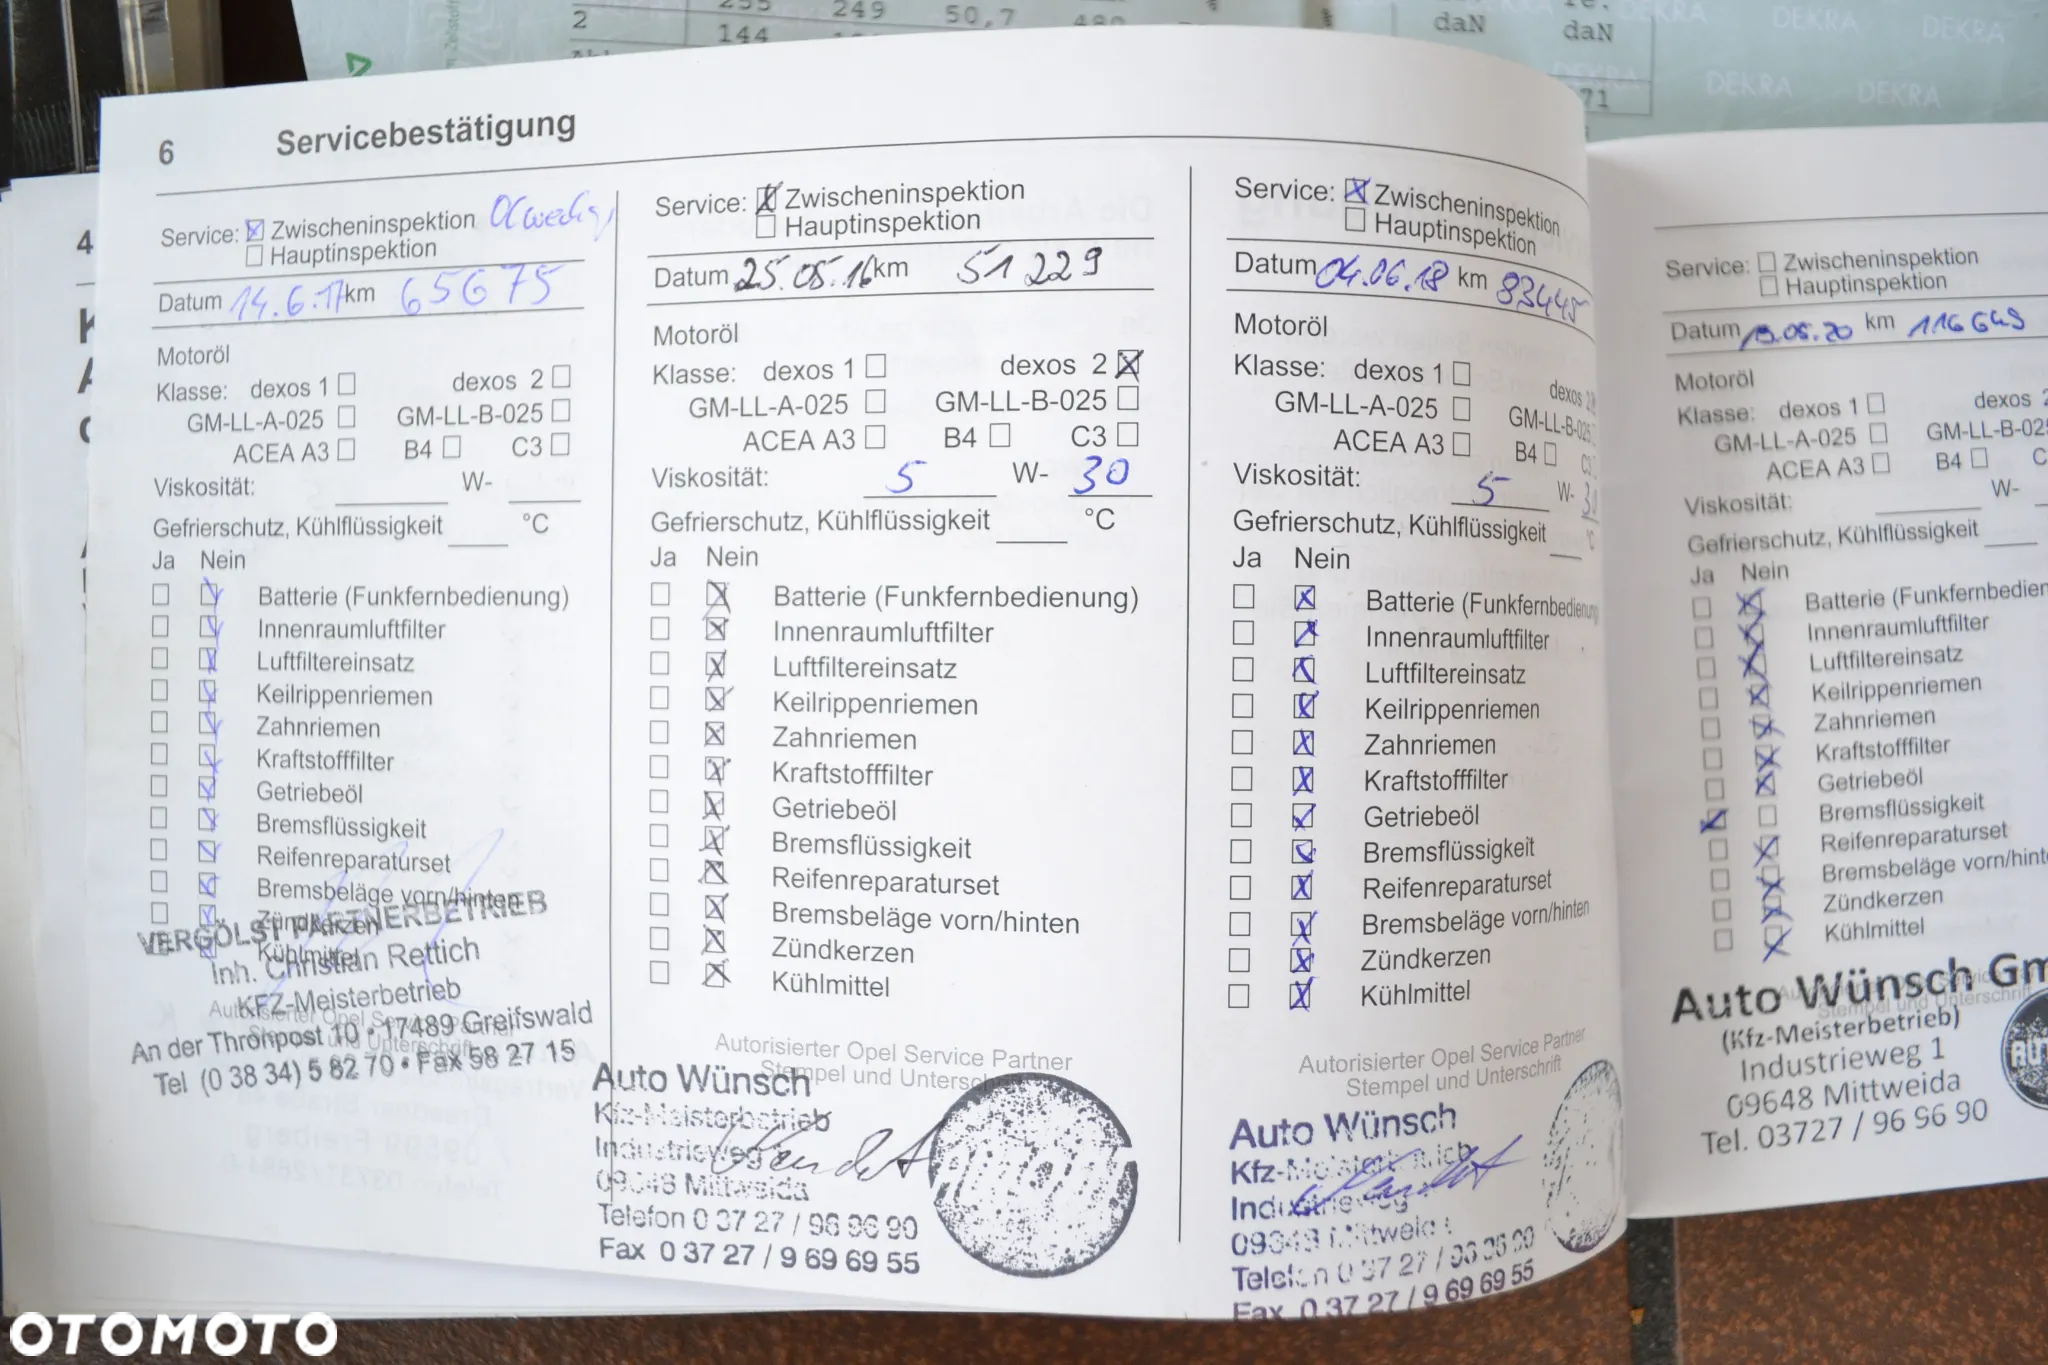 2
255 249 50,7 480
144
daN
daN
DEKRA DEKRA DEKRA
DEKRA DEKRA DEKRA
71
4
6 Servicebestätigung
Service: Zwischeninspektion Ölwechsel
Hauptinspektion
Datum 14.6.17 km 65675
Motoröl
Klasse: dexos 1 dexos 2
GM-LL-A-025 GM-LL-B-025
ACEA A3 B4 C3
Viskosität: W-
Gefrierschutz, Kühlflüssigkeit °C
Ja Nein
Batterie (Funkfernbedienung)
Innenraumluftfilter
Luftfiltereinsatz
Keilrippenriemen
Zahnriemen
Kraftstofffilter
Getriebeöl
Bremsflüssigkeit
Reifenreparaturset
Bremsbeläge vorn/hinten
Zündkerzen
Kühlmittel
Autorisierter Opel Service Partner
Stempel und Unterschrift
VERGÖLST PARTNERBETRIEB
Inh. Christian Rettich
KFZ-Meisterbetrieb
An der Thronpost 10 • 17489 Greifswald
Tel (0 38 34) 5 82 70 • Fax 58 27 15
Service: Zwischeninspektion
Hauptinspektion
Datum 25.05.16 km 51 229
Motoröl
Klasse: dexos 1 dexos 2
GM-LL-A-025 GM-LL-B-025
ACEA A3 B4 C3
Viskosität: 5 W- 30
Gefrierschutz, Kühlflüssigkeit °C
Ja Nein
Batterie (Funkfernbedienung)
Innenraumluftfilter
Luftfiltereinsatz
Keilrippenriemen
Zahnriemen
Kraftstofffilter
Getriebeöl
Bremsflüssigkeit
Reifenreparaturset
Bremsbeläge vorn/hinten
Zündkerzen
Kühlmittel
Autorisierter Opel Service Partner
Stempel und Unterschrift
Auto Wünsch
Kfz-Meisterbetrieb
Industrieweg 1
09648 Mittweida
Telefon 0 37 27 / 96 96 90
Fax 0 37 27 / 9 69 69 55
Service: Zwischeninspektion
Hauptinspektion
Datum 04.06.18 km 83445
Motoröl
Klasse: dexos 1 dexos 2
GM-LL-A-025 GM-LL-B-025
ACEA A3 B4 C3
Viskosität: 5 W- 30
Gefrierschutz, Kühlflüssigkeit °C
Ja Nein
Batterie (Funkfernbedienung
Innenraumluftfilter
Luftfiltereinsatz
Keilrippenriemen
Zahnriemen
Kraftstofffilter
Getriebeöl
Bremsflüssigkeit
Reifenreparaturset
Bremsbeläge vorn/hinten
Zündkerzen
Kühlmittel
Autorisierter Opel Service Partner
Stempel und Unterschrift
Auto Wünsch
Kfz-Meisterbetrieb
Industrieweg
09648 Mittweida
Telefon 0 37 27 / 96 96 90
Fax 0 37 27 / 9 69 69 55
Service: Zwischeninspektion
Hauptinspektion
Datum 19.05.20 km 116649
Motoröl
Klasse: dexos 1 dexos 2
GM-LL-A-025 GM-LL-B-025
ACEA A3 B4 C
Viskosität: W-
Gefrierschutz, Kühlflüssigkeit
Ja Nein
Batterie (Funkfernbedien
Innenraumluftfilter
Luftfiltereinsatz
Keilrippenriemen
Zahnriemen
Kraftstofffilter
Getriebeöl
Bremsflüssigkeit
Reifenreparaturset
Bremsbeläge vorn/hint
Zündkerzen
Kühlmittel
Stempel und Unterschrift
Auto Wünsch Gm
(Kfz-Meisterbetrieb)
Industrieweg 1
09648 Mittweida
Tel. 03727 / 96 96 90
OTOMOTO